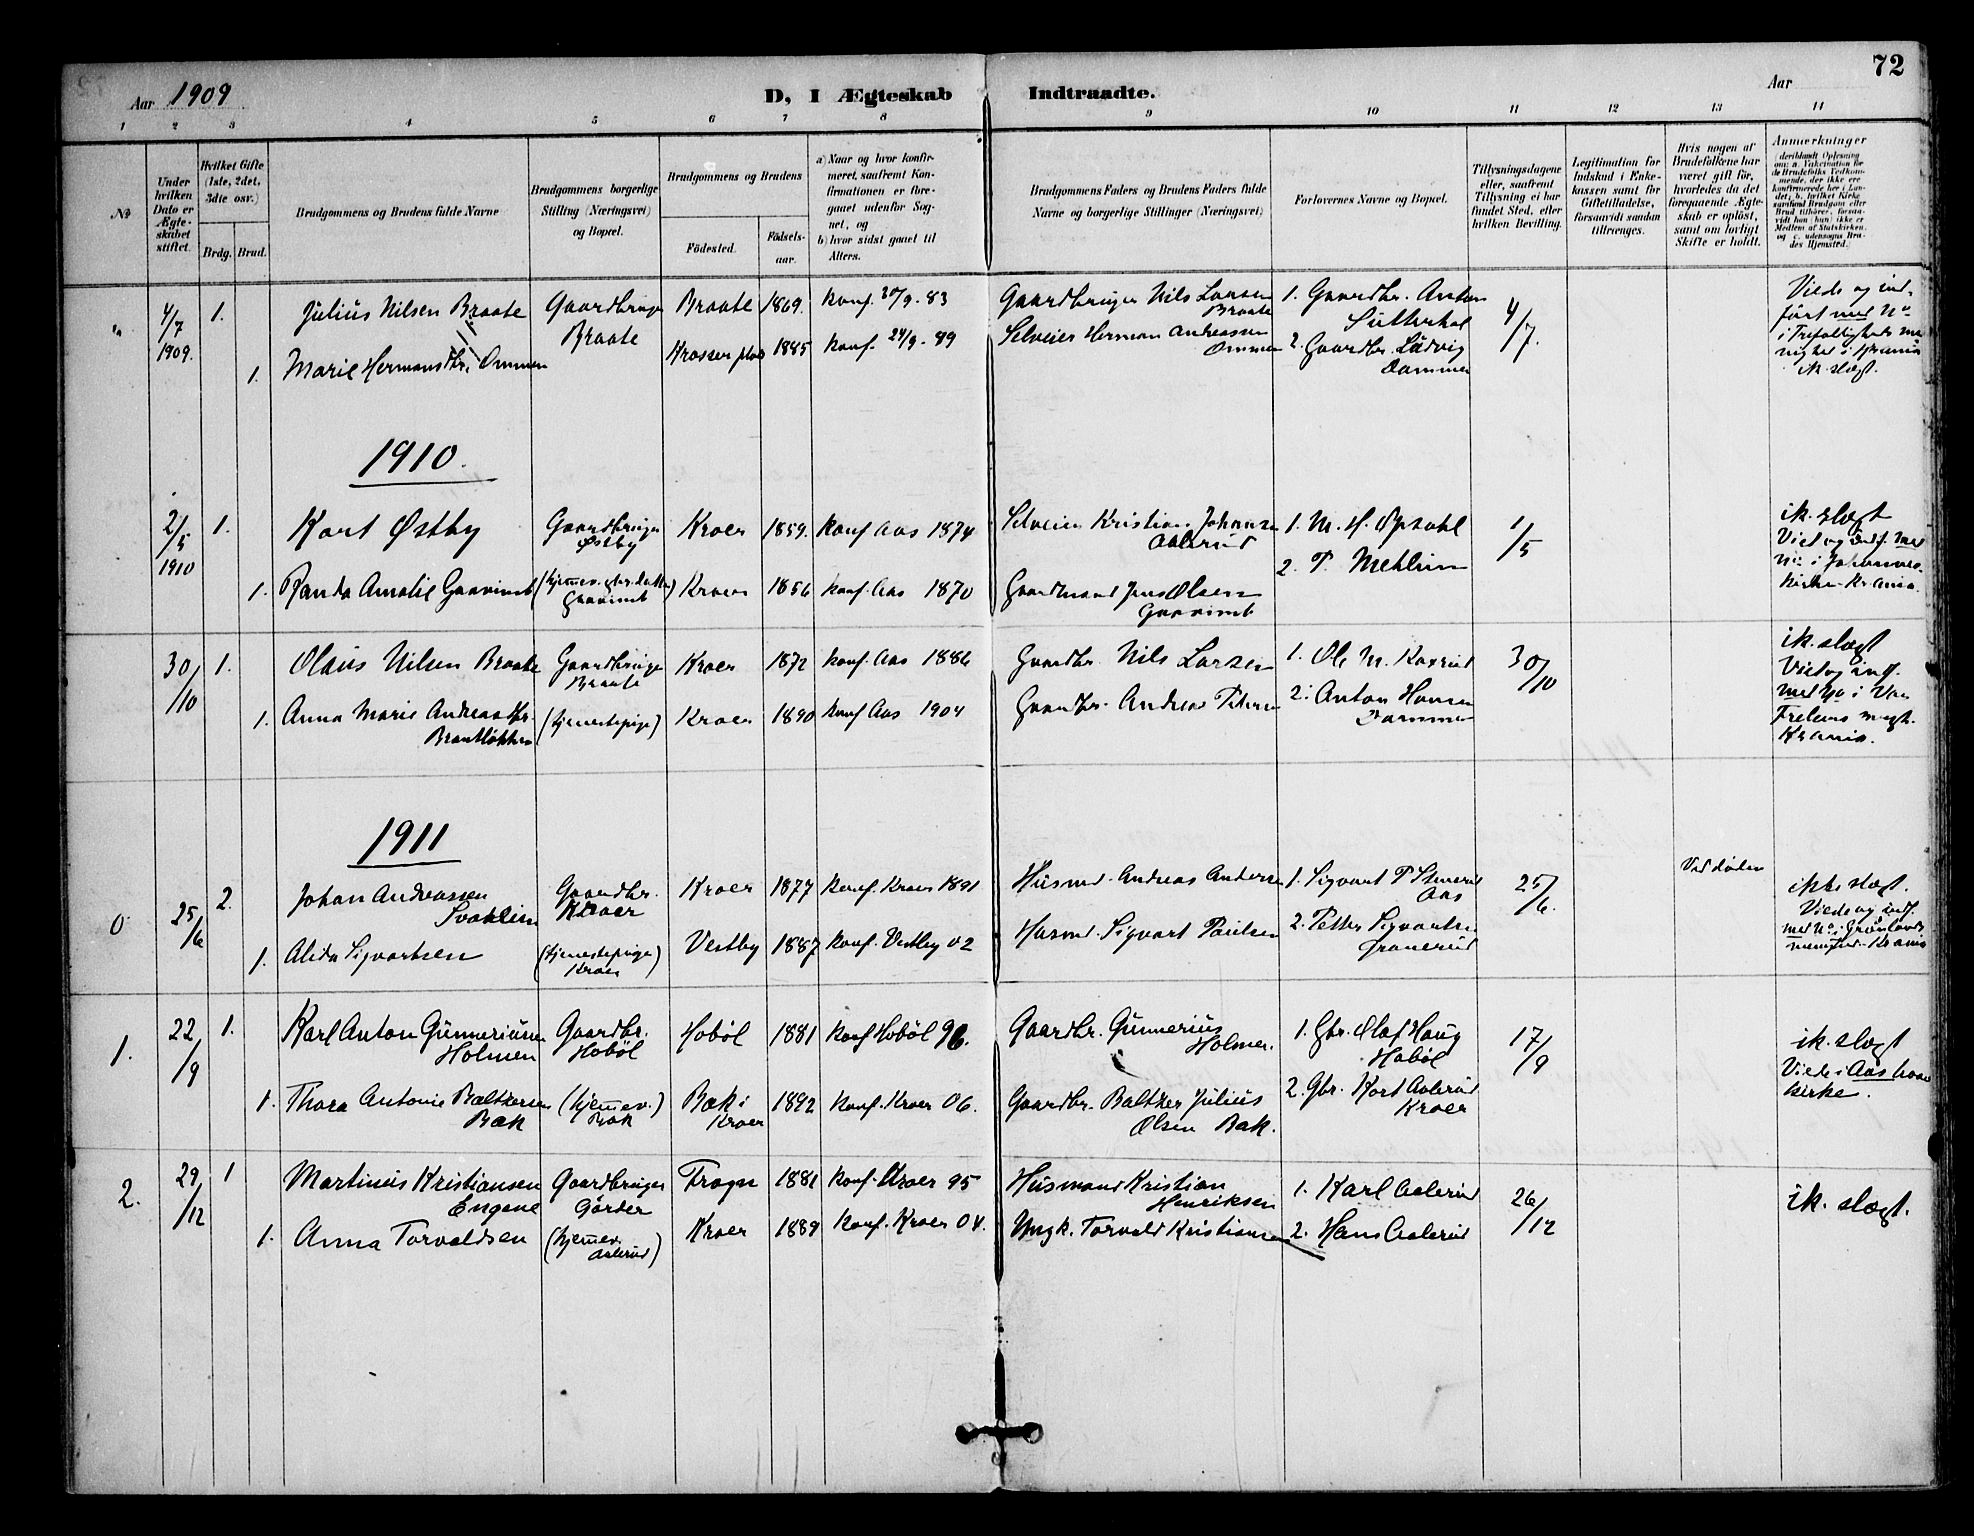 72
Aar 1909
D, I Ægteskab Indtraadte.
Aar
1 2 3 4 5 6 7 8 9 10 11 12 13 14
No
Under hvilken Dato er Ægteskabet stiftet.
Hvilket Gifte (1ste, 2det, 3die osv.)
Brdg. Brud.
Brudgommens og Brudens fulde Navne
Brudgommens borgerlige Stilling (Næringsvei) og Bopæl.
Brudgommens og Brudens
Fødested.
Fødselsaar.
a) Naar og hvor konfirmeret, saafremt Konfirmationen er foregaaet udenfor Sognet, og
b) hvor sidst gaaet til Alters.
Brudgommens Faders og Brudens Faders fulde Navne og borgerlige Stillinger (Næringsvei)
Forlovernes Navne og Bopæl.
Tillysningsdagene eller, saafremt Tillysning ei har fundet Sted, efter hvilken Bevilling.
Legitimation for Indskud i Enkekassen samt for Giftetilladelse, forsaavidt saadan tiltrænges.
Hvis nogen af Brudefolkene har været gift før, hvorledes da det foregaaende Ægteskab er opløst, samt om lovligt Skifte er holdt.
Anmærkninger
(deriblandt Oplysning om: a. Vakcination for de Brudefolks Vedkommende, der ikke ere konfirmerede her i Landet; b. hvilket Kirkesamfund Brudgom eller Brud tilhører, forsaavidt han (hun) ikke er Medlem af Statskirken. og c. udensogns Brudes Hjemsted.)
4/7 1909. 1. Julius Nilsen Braate Gaardbruger Braate Braate 1869. konf. 30/9. 83 Gaardbruger Nils Larsen Braate 1. Gaardbr. Anton 4/7. Viede og indført med No i Trefoldigheds menighed i Krania ik. slægt.
1. Marie Hermansdtr. Ommen Krosser plads 1885 konf. 24/9. 99 Selveier Herman Andreassen Ommen 2. Gaardbr. Ludvig Dammen
1910.
2/5 1910 1. Kart Østby Gaardbruger Østby Kroer 1859. konf Aas 1874 Selveier Kristian Johansen Aalerud 1. M. H. Opsahl 1/5 ik. slægt Viet og indf. med No i Johannes Kirken Krania.
1. Randa Amalie Kroer 1856 konf. Aas 1870 Gaardmand Jens Olsen 2. P. Mehlum
30/10 1. Olaus Nilsen Braate Gaardbruger Braate Kroer 1872 konf. Aas 1886 Gaardbr. Nils Larsen 1. Ole M. 30/10 ik. slægt Viet og indf. med No i Vor Frelsers mgh. Krania.
1. Anna Marie Andreasdtr. Brautløkken (Tjenestepige) Kroer 1890 konf Aas 1904 Gaardbr. Andreas Petersen 2. Anton Hansen Dammen
1911
0 25/6 2. Johan Andreassen Gaardbr. Kroer Kroer 1877 konf. Kroer 1891 Husmd. Andreas Andersen 1. Sigvart P. Aas 25/6. Ved døden ikke slægt. Viede og indf. med No i Grønlands menighed Krania
1. Alida Sigvartsen (Tjenestepige) Kroer Vestby 1887 konf. Vestby 02 Husmd. Sigvart Paulsen 2. Petter Sigvartsen Granerud
1. 22/9 1. Karl Anton Gunneriusen Holmen Gaardbr. Hobøl Hobøl 1881 konf Hobøl 96. Gaardbr. Gunnerius Holmen. 1. Gbr. Olaf Haug Hobøl 17/9 ik. slægt Viede i Aas hovedkirke.
1. Thora Antonie Baltzersen Bæk (hjemmev.) Bæk Bæk i Kroer 1892 konf. Kroer 06. Gaardbr. Baltzer Julius Olsen Bæk. 2. Gbr. Kort Aalerud Kroer
2. 29/12 1 Martinius Kristiansen Engene Gaardbruger Gårder Frogn 1881 konf. Kroer 95 Husmand Kristian Henriksen 1. Karl Aalerud 26/12 ik. slægt.
1. Anna Torvaldsen (hjemmev. Aalerud) Kroer 1889 konf. Kroer 04. Ungk. Torvald Kristiansen 2. Hans Aalerud